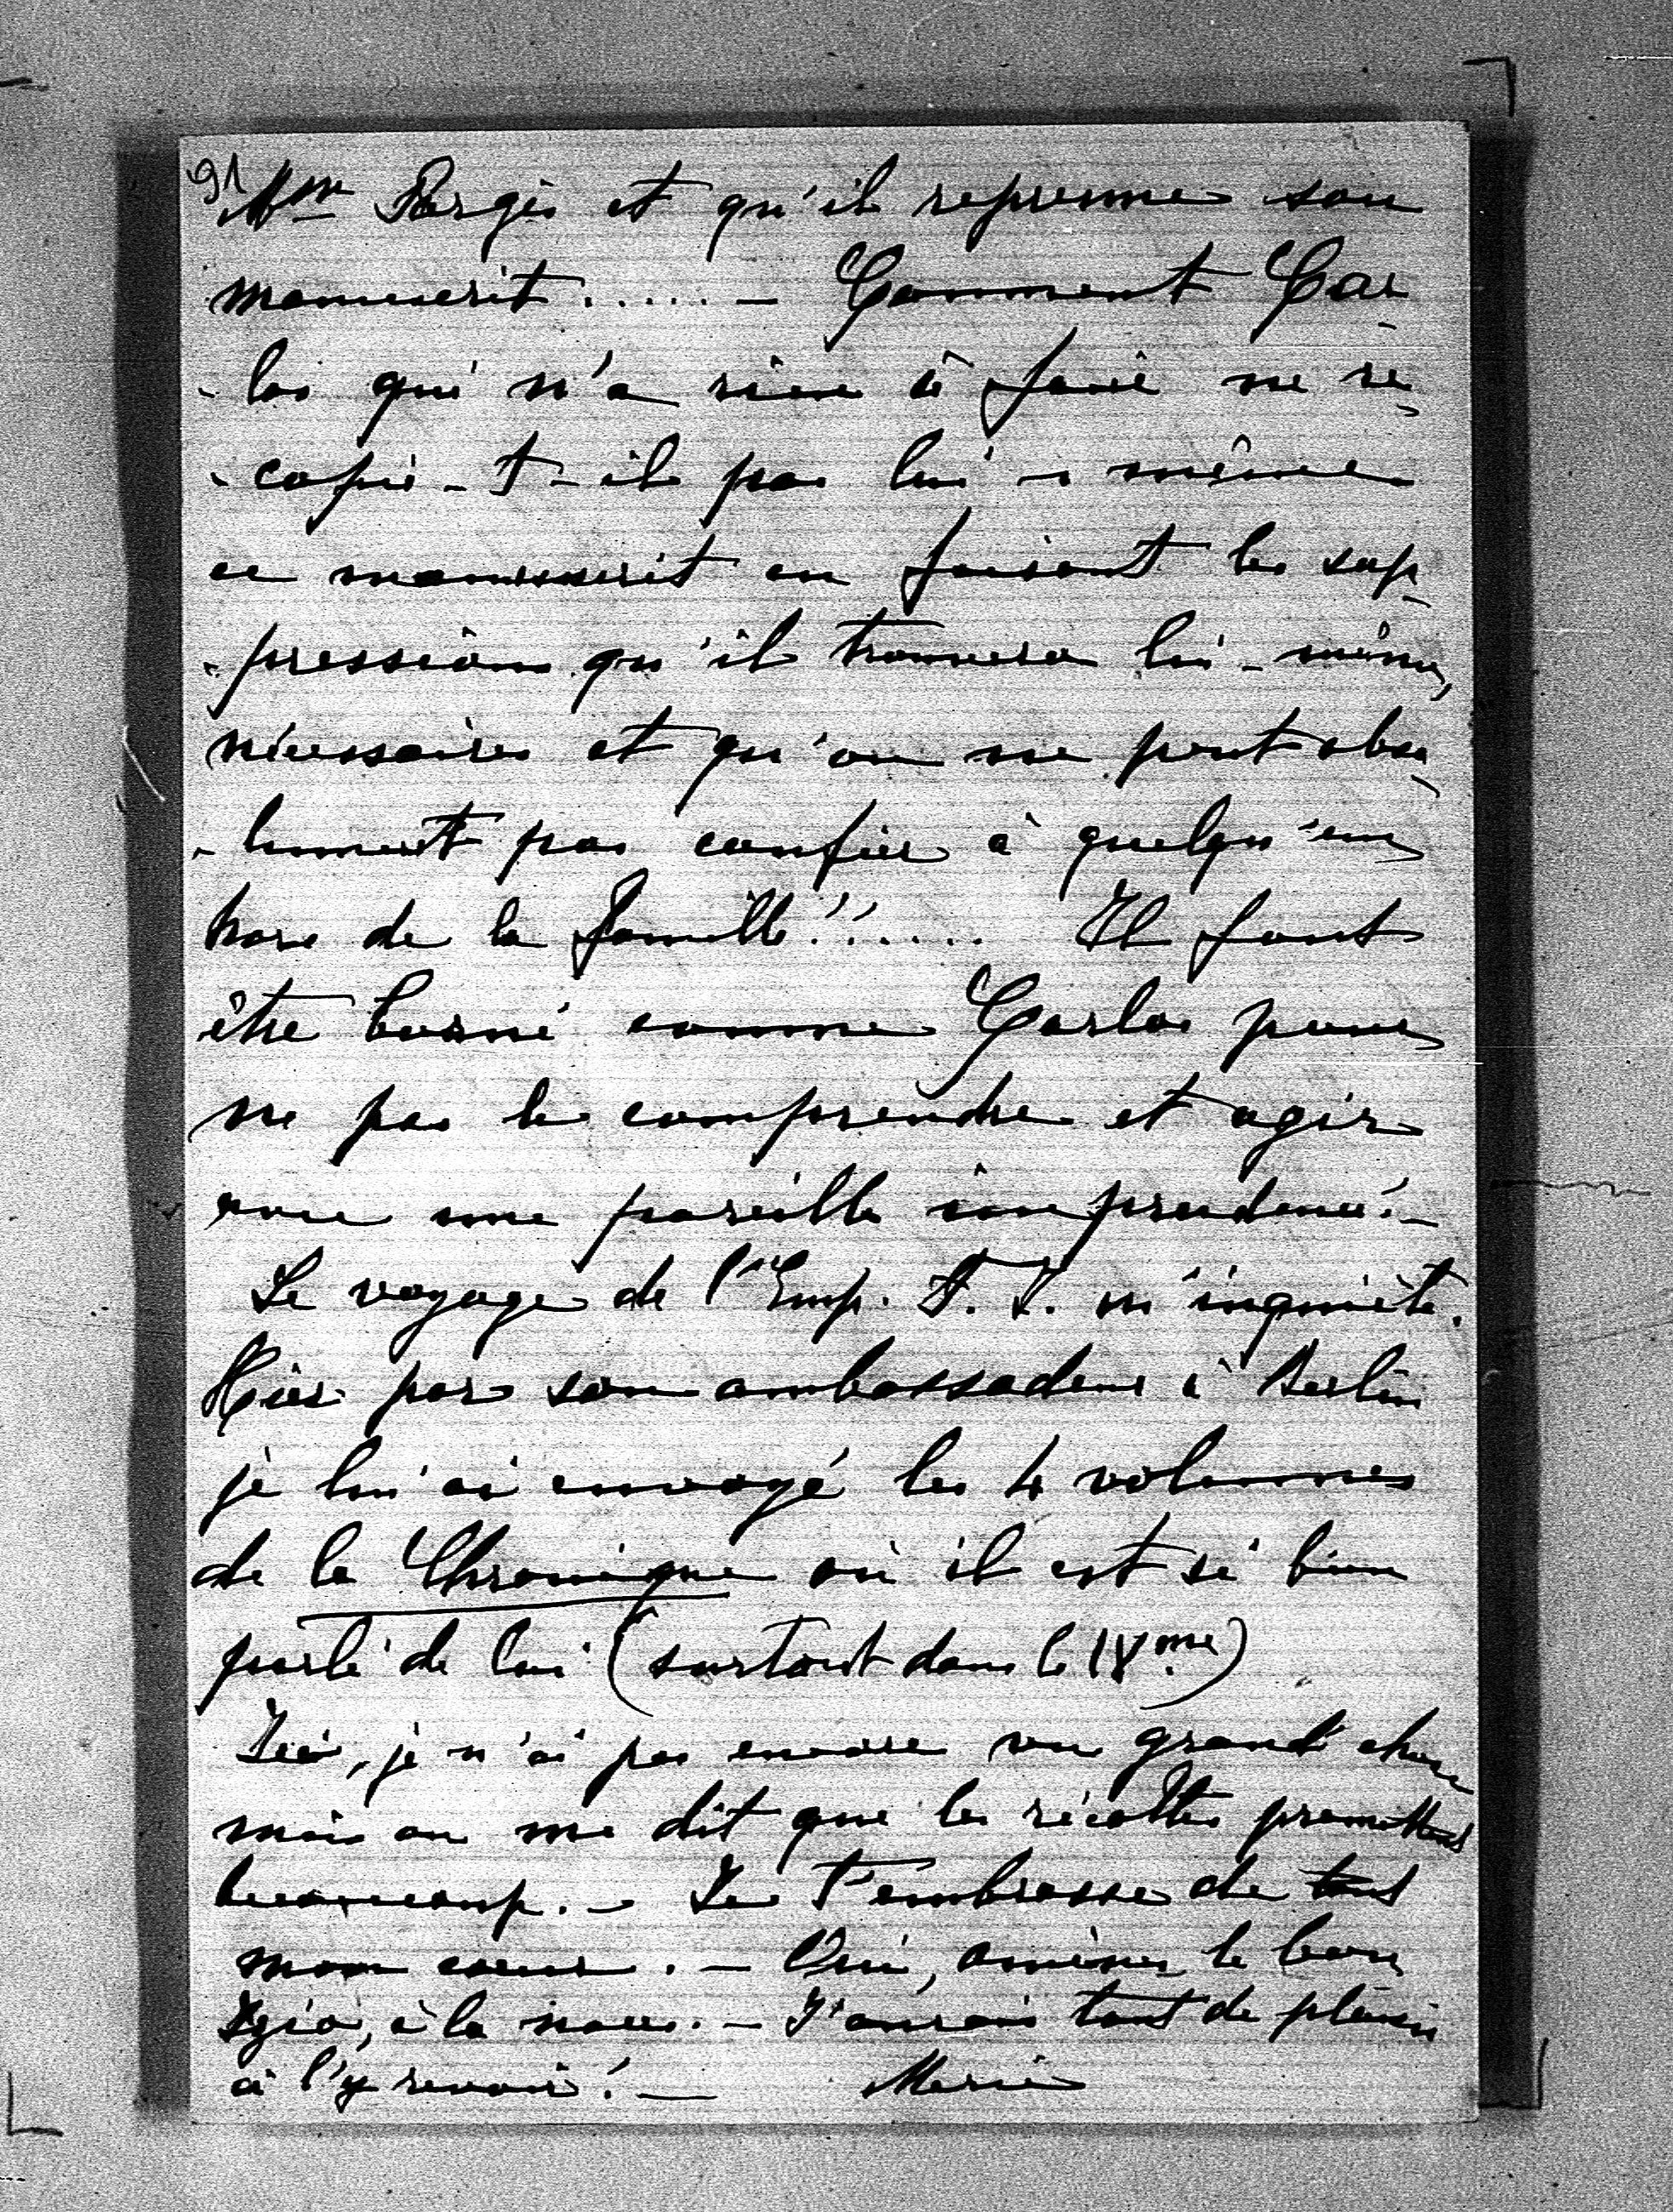 91
Mme Pargés et qu'il reprenne son
manuscrit ..... — Comment Car
- los qui n'a rien à faire ne re
- copie-t-il pas lui-même
ce manuscrit en faisant les sup
- pressions qu'il trouvera lui-même,
nécessaires et qu'on ne peut abso
- lument pas confier à quelqu'un
hors de la famille!!..... Il faut
être borné comme Carlos pour
ne pas le comprendre et agir
avec une pareille imprudence! —
Le voyage de l'Emp. F. J. m'inquiète.
Hier par son ambassadeur à Berlin
je lui ai envoyé les 4 volumes
de la Chronique où il est si bien
parlé de lui (surtout dans le IVme)
Ici, je n'ai pas encore vu grand chose
mais on me dit que les récoltes promettent
beaucoup. — Je t'embrasse de tout
mon cœur. — Oui, amène le bon
à la noce. — J'aurais tant de plaisir
à l'y revoir! — Marie